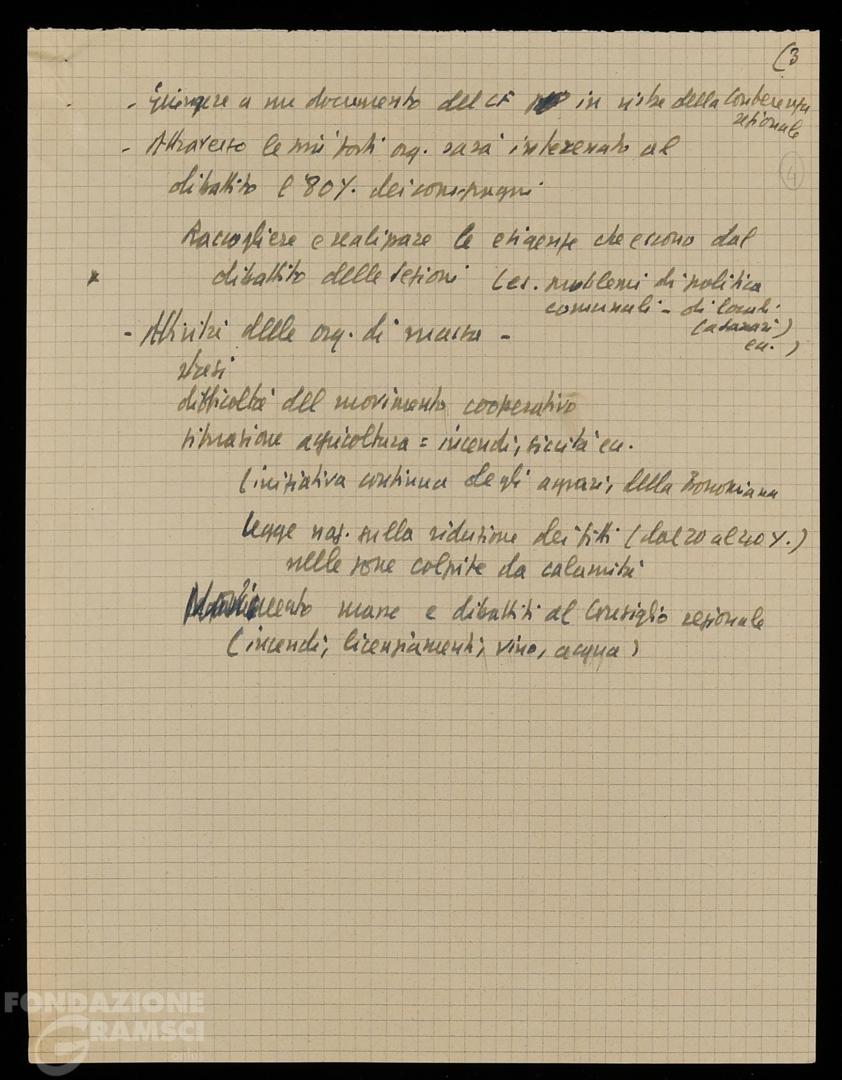 (3
- Giungere a un documento del CF in vista della Conferenza
regionale
- Attraverso le più forti org. sarà interessato al
(4)
dibattito l'80%. dei compagni
Raccogliere e realizzare le esigenze che escono dal
x dibattito delle Sezioni (es. problemi di politica
comunali - di locali
- Attività delle org. di massa -
ec. )
difficoltà del movimento cooperativo
situazione agricoltura = incendi, siccità ec.
(iniziativa continua degli agrari, della
legge naz. sulla riduzione dei fitti (dal 20 al 40%.)
nelle zone colpite da calamità
masse e dibattiti al Consiglio regionale
(incendi, licenziamenti, vino, acqua)
FONDAZIONE
GRAMSCI
onlus